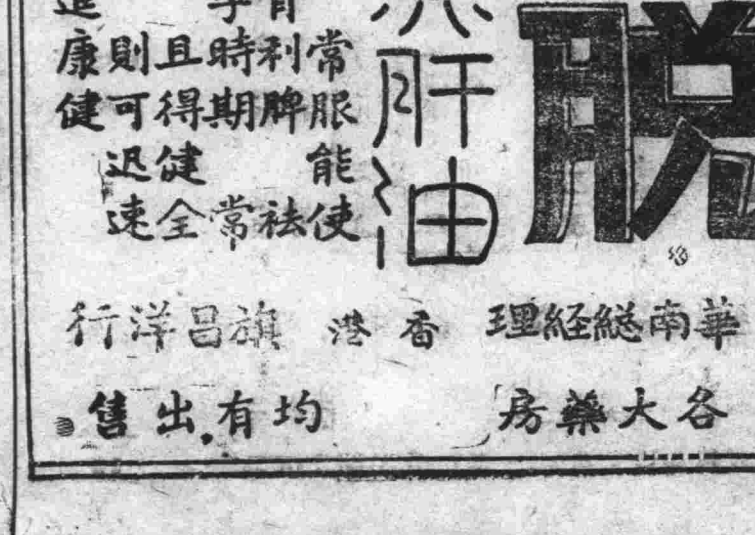 脱
肝油
常服能使
利脾祛
時期常
且得健全
則可迅速
康健
華南総経理 香港 旗昌洋行
各大藥房 均有出售